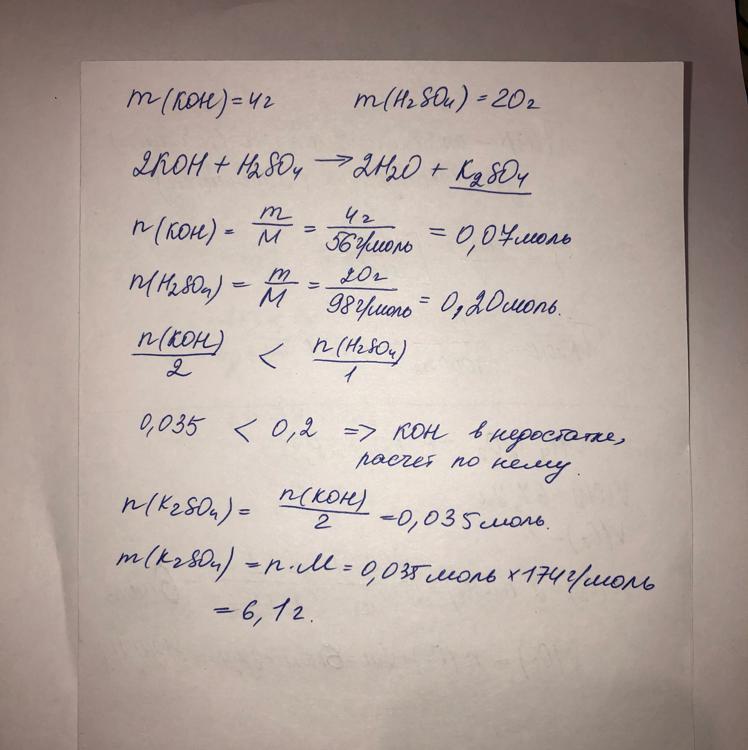 m(KOH)=4г m(H₂SO₄)=20г
2KOH + H₂SO₄ → 2H₂O + K₂SO₄
n(KOH) = m/M = 4г/56г/моль = 0,07моль
n(H₂SO₄) = m/M = 20г/98г/моль = 0,20моль.
n(KOH)/2 < n(H₂SO₄)/1
0,035 < 0,2 => KOH в недостатке,
расчет по нему.
n(K₂SO₄) = n(KOH)/2 = 0,035моль.
m(K₂SO₄) = n·M = 0,035моль×174г/моль
= 6,1г.